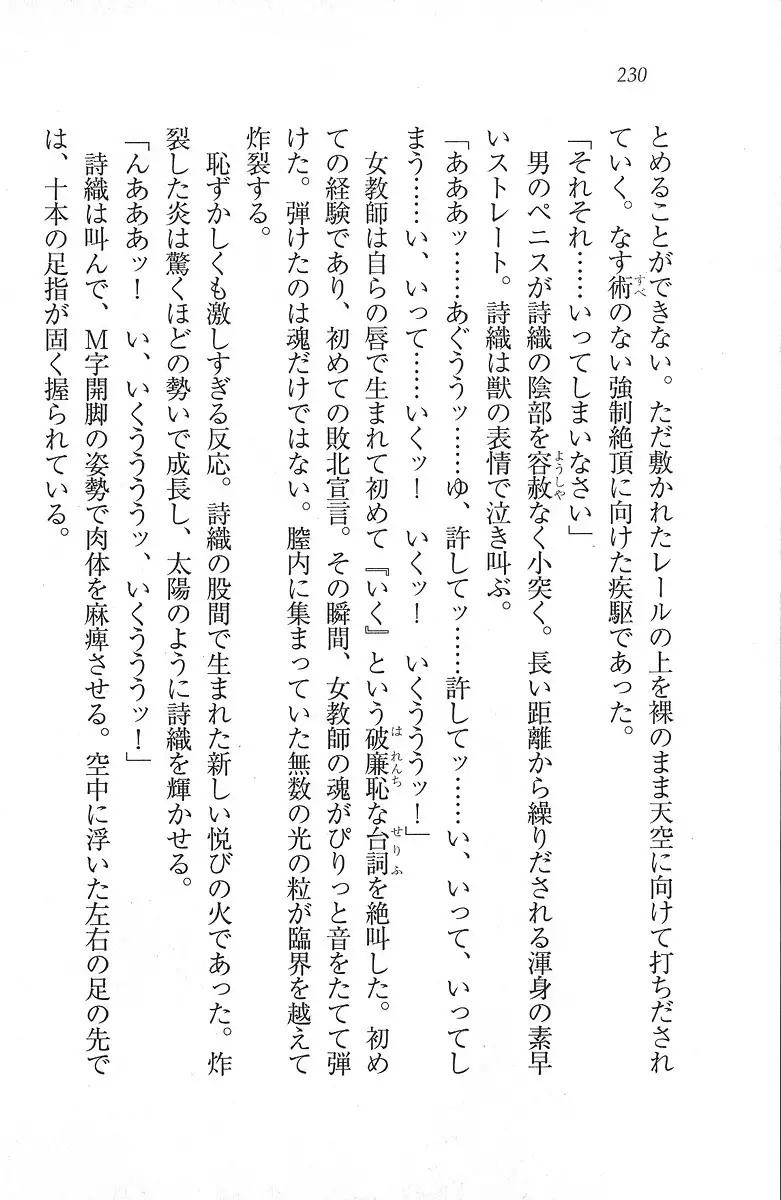 230
とめることができない。ただ敷かれたレールの上を裸のまま天空に向けて打ちだされ
ていく。なす術のない強制絶頂に向けた疾駆であった。
すべ
「それそれ……いってしまいなさい」
男のペニスが詩織の陰部を容赦なく小突く。長い距離から繰りだされる渾身の素早
ようしゃ
いストレート。詩織は獣の表情で泣き叫ぶ。
「あああッ……あぐううッ……ゆ、許してッ……許してッ……い、いって、いってし
まう……い、いって……いくッ！　いくッ！　いくうううッ！」
女教師は自らの唇で生まれて初めて『いく』という破廉恥な台詞を絶叫した。初め
はれんち
せりふ
ての経験であり、初めての敗北宣言。その瞬間、女教師の魂がぴりっと音をたてて弾
けた。弾けたのは魂だけではない。膣内に集まっていた無数の光の粒が臨界を越えて
炸裂する。
恥ずかしくも激しすぎる反応。詩織の股間で生まれた新しい悦びの火であった。炸
裂した炎は驚くほどの勢いで成長し、太陽のように詩織を輝かせる。
「んあああッ！　い、いくううううッ、いくうううッ！」
詩織は叫んで、Ｍ字開脚の姿勢で肉体を麻痺させる。空中に浮いた左右の足の先で
は、十本の足指が固く握られている。